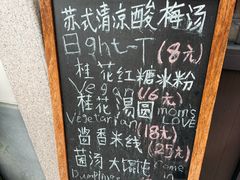 苏式清凉酸梅汤
Eight-T (8元)
桂花红糖冰粉
Vegan (16元)
桂花汤圆 mom's
Vegetarian LOVE
茴香米线 (18元)
菌汤大馄饨 (25元)